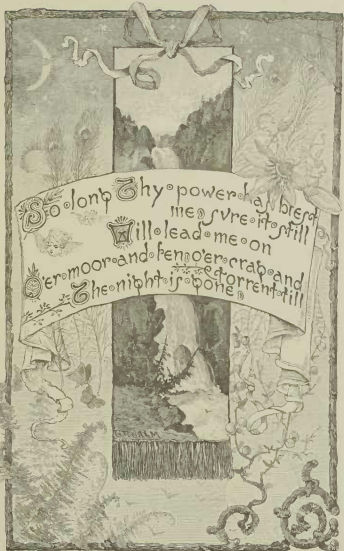 So long Thy power has blest
me, sure it still
Will lead me on
O'er moor and fen, o'er crag and
torrent till
The night is gone,